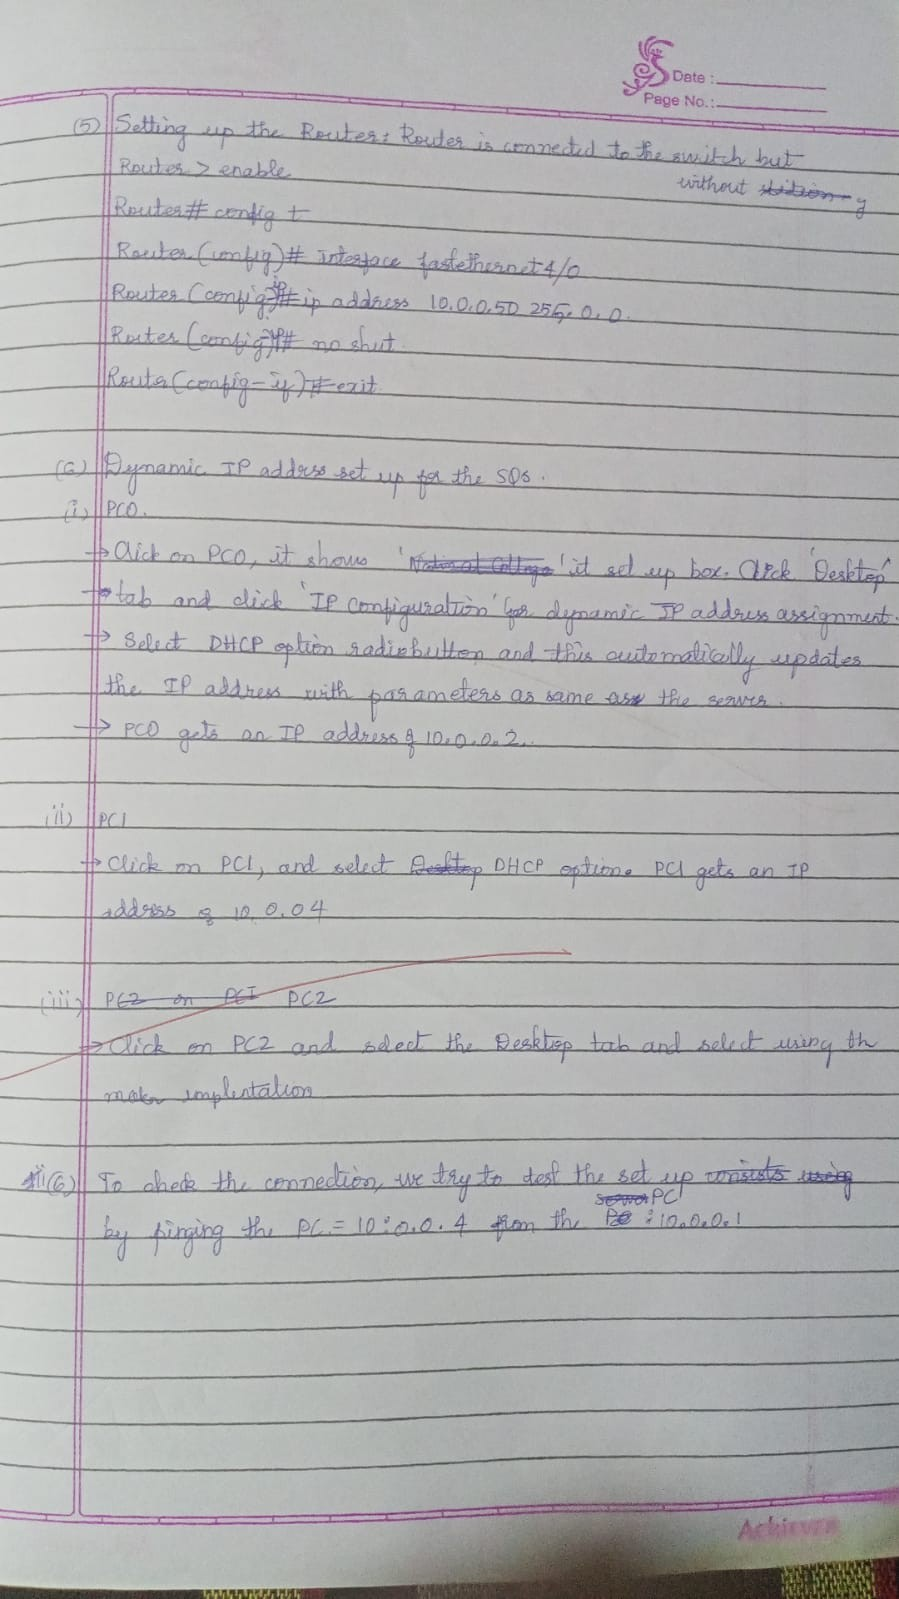 Date :
Page No.:
(5) Setting up the Router: Router is connected to the switch but
without
Router > enable
Router# config t
Router (config)# interface fastethernet 4/0
Router (config-if)# ip address 10.0.0.50 255.0.0.
Router (config-if)# no shut
Router (config-if)# exit
(6) Dynamic IP address set up for the
(i) PC0.
→ Click on PC0, it shows ' ' it set up box. Click 'Desktop'
tab and click 'IP Configuration' for dynamic IP address assignment.
→ Select DHCP option radiobutton and this automatically updates
the IP address with parameters as same as the server.
→ PC0 gets an IP address of 10.0.0.2.
(ii) PC1
→ Click on PC1, and select Desktop DHCP option. PC1 gets an IP
address of 10.0.04
(iii) PC2 on PC1 PC2
→ Click on PC2 and select the Desktop tab and select using th
(6) To check the connection, we try to test the set up consists using
server PC
by pinging the PC = 10:0.0.4 from the PC : 10.0.0.1
Achiever